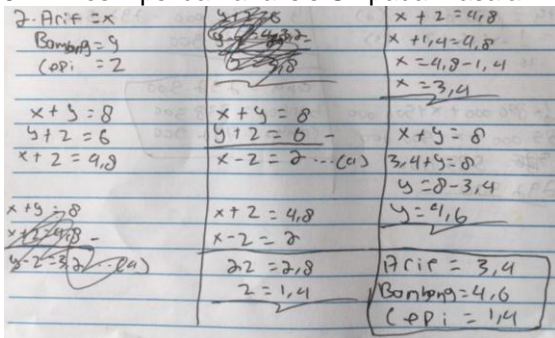 2. Arif = x
Bambang = y
Cepi = z
x + y = 8
y + z = 6
x + z = 4,8
x + y = 8
x + z = 4,8 -
y - z = 3,2 ... (a)
x + y = 8
y + z = 6 -
x - z = 2 ... (a)
x + z = 4,8
x - z = 2
2z = 2,8
z = 1,4
x + z = 4,8
x + 1,4 = 4,8
x = 4,8 - 1,4
x = 3,4
x + y = 8
3,4 + y = 8
y = 8 - 3,4
y = 4,6
Arif = 3,4
Bambang = 4,6
Cepi = 1,4